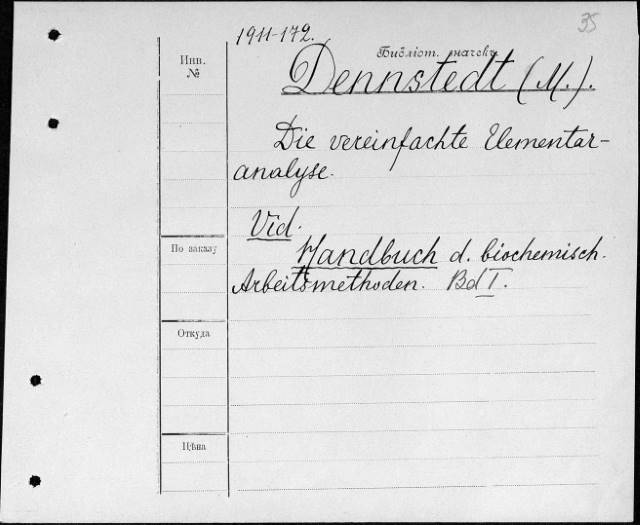 35
1911-172.
Библіот. значекъ
Инв.
№
Dennstedt (M.).
Die vereinfachte Elementar-
analyse.
Vid.
По заказу
Handbuch d. biochemisch.
Arbeitsmethoden. Bd I.
Откуда
Цѣна